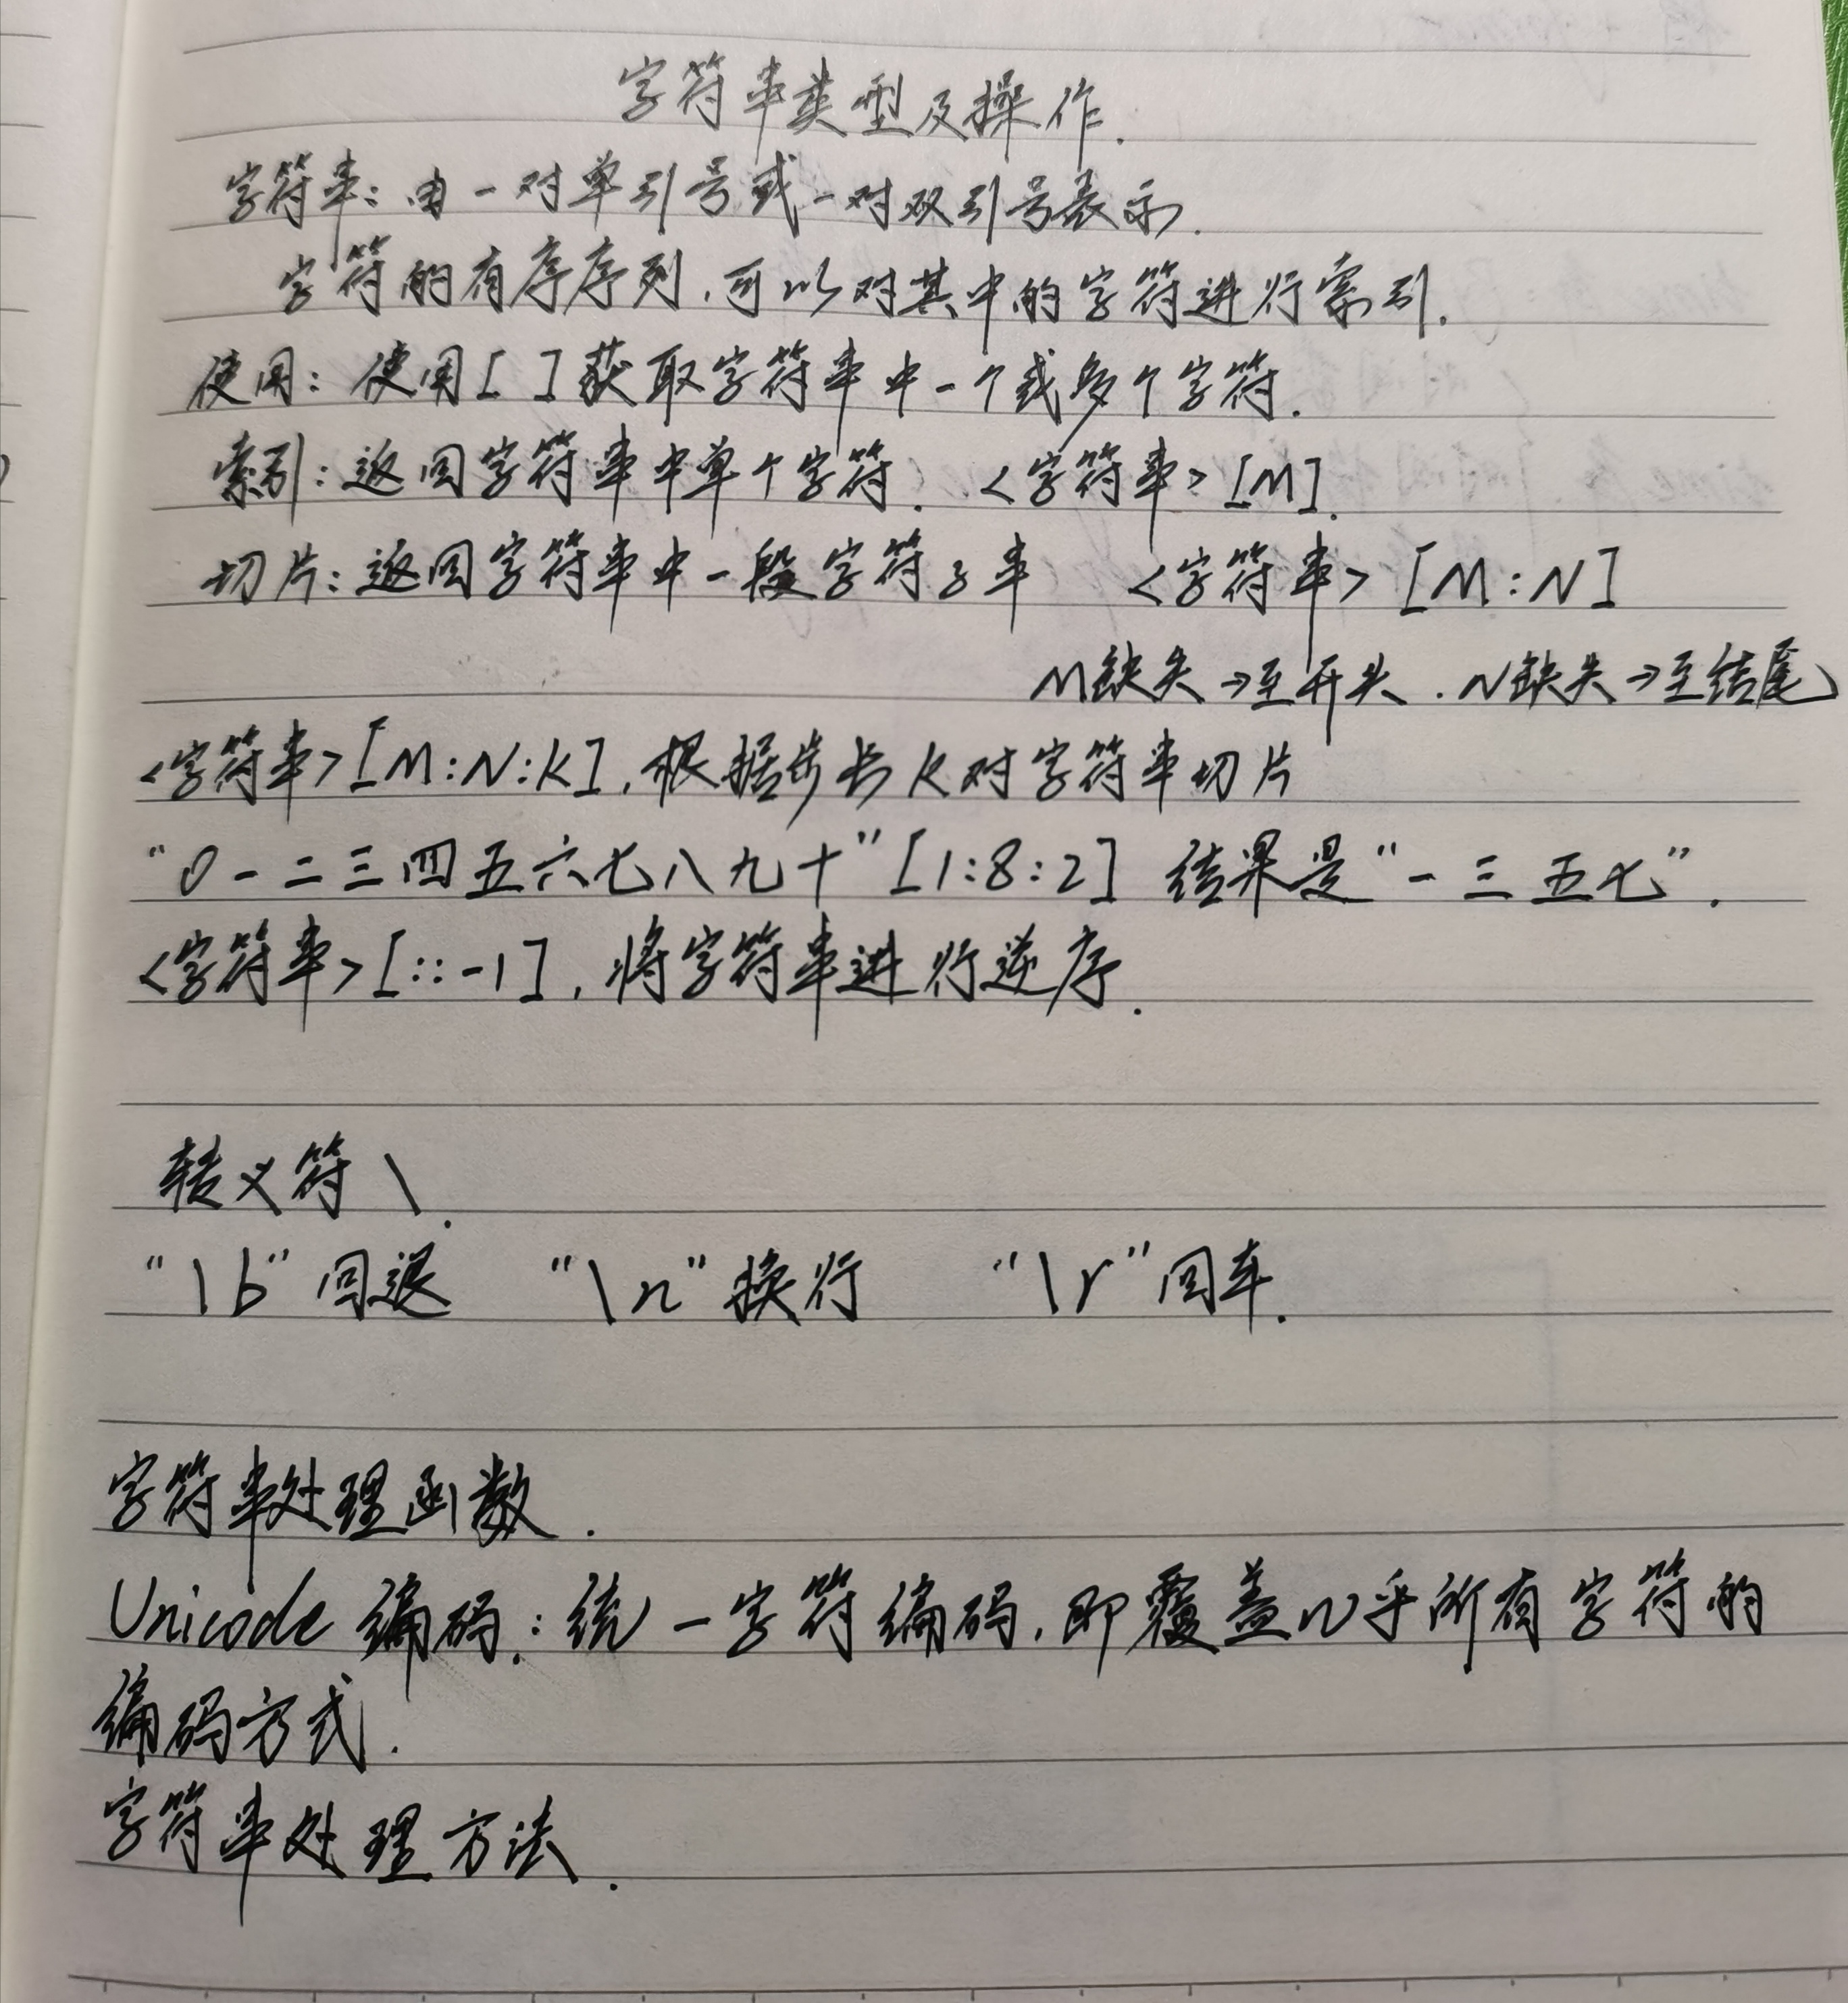 字符串类型及操作.
字符串：由一对单引号或一对双引号表示.
字符的有序序列,可以对其中的字符进行索引.
使用：使用[ ]获取字符串中一个或多个字符.
索引：返回字符串中单个字符. <字符串>[M].
切片：返回字符串中一段字符子串 <字符串>[M:N]
M缺失→至开头.N缺失→至结尾
<字符串>[M:N:K],根据步长K对字符串切片
“0一二三四五六七八九十”[1:8:2] 结果是“一三五七”.
<字符串>[::-1],将字符串进行逆序.
转义符\.
“\b”回退 “\n”换行 “\r”回车.
字符串处理函数.
Unicode编码：统一字符编码,即覆盖几乎所有字符的
编码方式.
字符串处理方法.